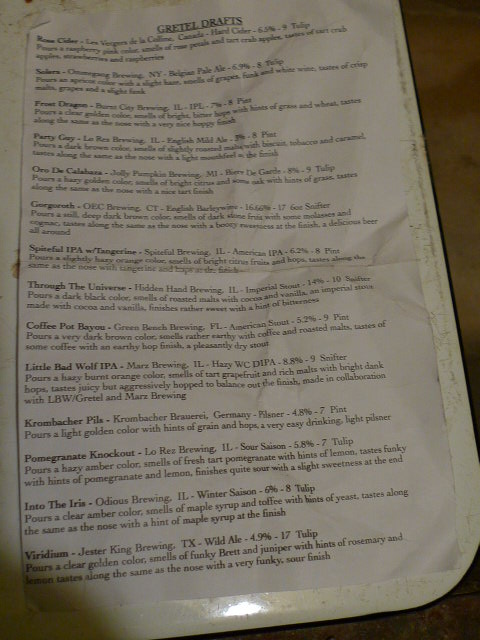 GRETEL DRAFTS
Rose Cider - Les Vergers de la Colline, Canada - Hard Cider - 6.5% - 9 Tulip
Pours a raspberry pink color, smells of rose petals and tart crab apples, tastes of tart crab
apples, strawberries and raspberries
Solera - Ommegang Brewing, NY - Belgian Pale Ale - 6.9% - 8 Tulip
Pours an apricot color with a slight haze, smells of grapes, funk and white wine, tastes of crisp
malts, grapes and a slight funk
Frost Dragon - Burnt City Brewing, IL - IPL - 7% - 8 Pint
Pours a clear golden color, smells of bright, bitter hops with hints of grass and wheat, tastes
along the same as the nose with a very nice hoppy finish
Party Guy - Lo Rez Brewing, IL - English Mild Ale - 8 Pint
Pours a dark brown color, smells of slightly roasted malts with biscuit, tobacco and caramel,
tastes along the same as the nose with a light mouthfeel in the finish
Oro De Calabaza - Jolly Pumpkin Brewing, MI - Biere De Garde - 8% - 9 Tulip
Pours a hazy golden color, smells of bright citrus and some oak with hints of grass, tastes
along the same as the nose with a nice tart finish
Gorgoroth - OEC Brewing, CT - English Barleywine - 16.66% - 17 6oz Snifter
Pours a still, deep dark brown color, smells of dark stone fruit with some molasses and
cognac, tastes along the same as the nose with a boozy sweetness at the finish, a delicious beer
all around
Spiteful IPA w/Tangerine - Spiteful Brewing, IL - American IPA - 6.2% - 8 Pint
Pours a slightly hazy orange color, smells of bright citrus fruits and hops, tastes along the
same as the nose with tangerine and hops at the finish
Through The Universe - Hidden Hand Brewing, IL - Imperial Stout - 14% - 10 Snifter
Pours a dark black color, smells of roasted malts with cocoa and vanilla, an imperial stout
made with cocoa and vanilla, finishes rather sweet with a hint of bitterness
Coffee Pot Bayou - Green Bench Brewing, FL - American Stout - 5.2% - 9 Pint
Pours a very dark brown color, smells rather earthy with coffee and roasted malts, tastes of
some coffee with an earthy hop finish, a pleasantly dry stout
Little Bad Wolf IPA - Marz Brewing, IL - Hazy WC DIPA - 8.8% - 9 Snifter
Pours a hazy burnt orange color, smells of tart grapefruit and rich malts with bright dank
hops, tastes juicy but aggressively hopped to balance out the finish, made in collaboration
with LBW/Gretel and Marz Brewing
Krombacher Pils - Krombacher Brauerei, Germany - Pilsner - 4.8% - 7 Pint
Pours a light golden color with hints of grain and hops, a very easy drinking, light pilsner
Pomegranate Knockout - Lo Rez Brewing, IL - Sour Saison - 5.8% - 7 Tulip
Pours a hazy amber color, smells of fresh tart pomegranate with hints of lemon, tastes funky
with hints of pomegranate and lemon, finishes quite sour with a slight sweetness at the end
Into The Iris - Odious Brewing, IL - Winter Saison - 6% - 8 Tulip
Pours a clear amber color, smells of maple syrup and toffee with hints of yeast, tastes along
the same as the nose with a hint of maple syrup at the finish
Viridium - Jester King Brewing, TX - Wild Ale - 4.9% - 17 Tulip
Pours a clear golden color, smells of funky Brett and juniper with hints of rosemary and
lemon tastes along the same as the nose with a very funky, sour finish